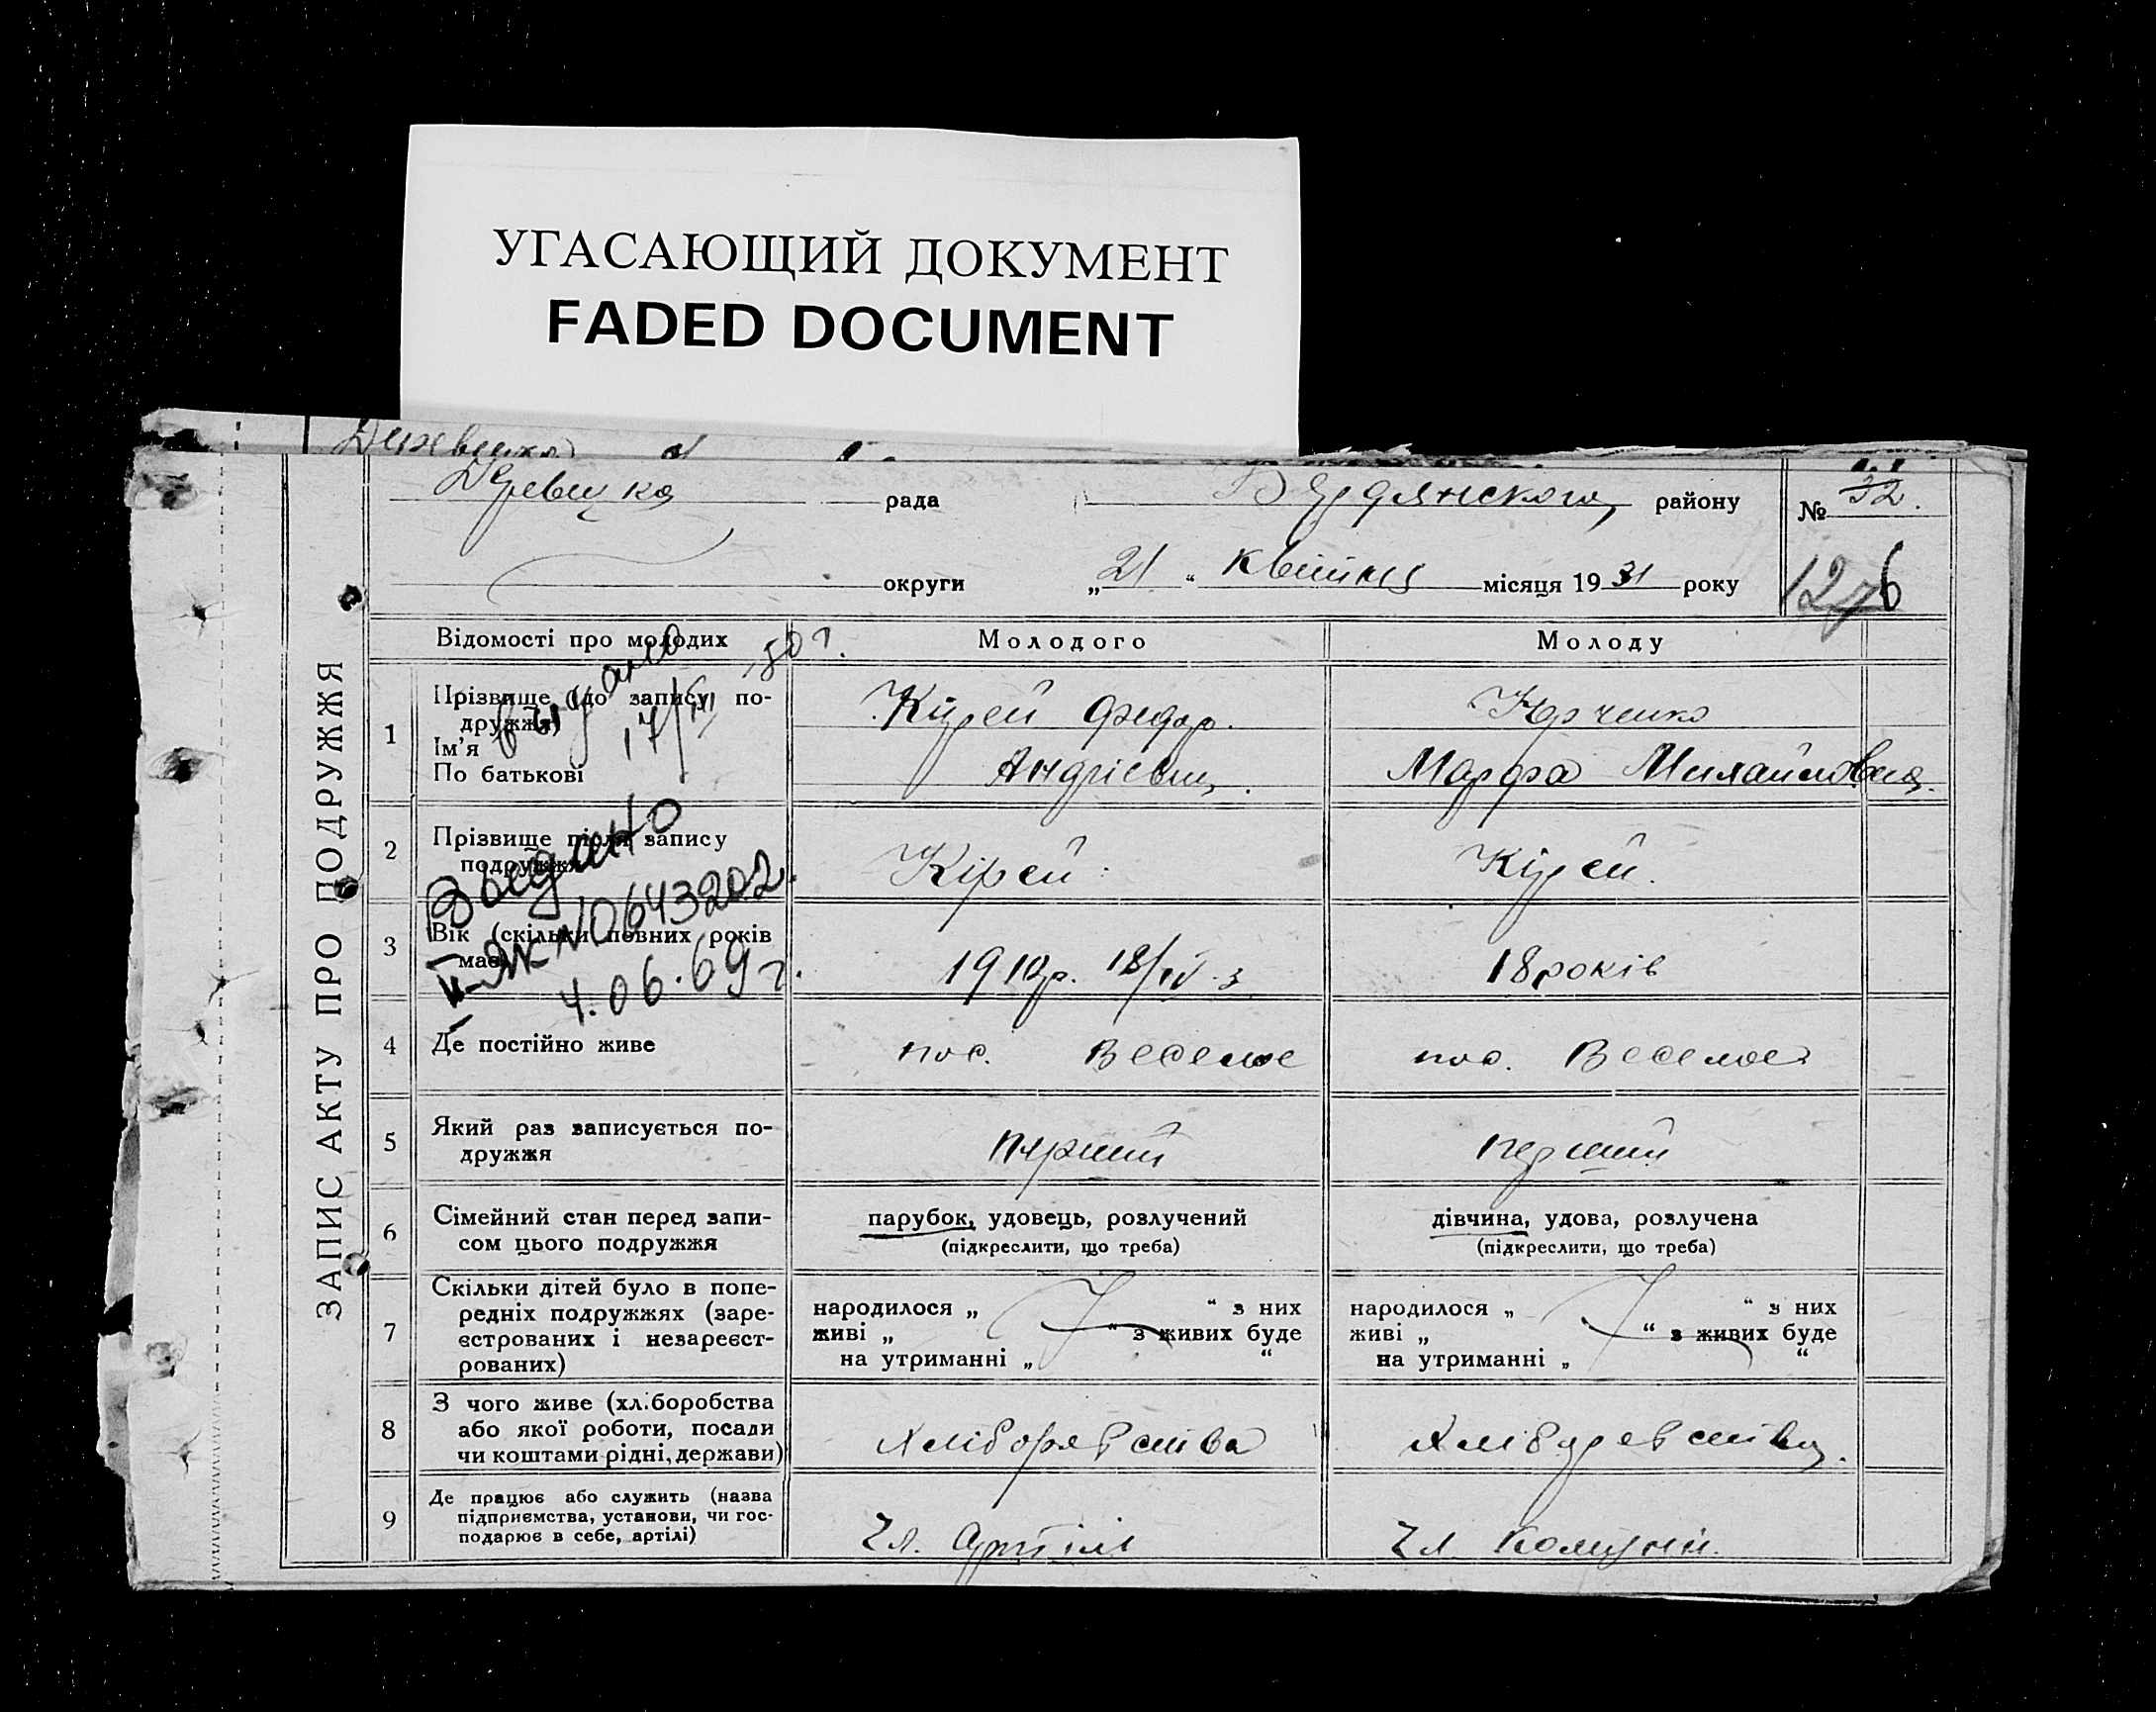 УГАСАЮЩИЙ ДОКУМЕНТ
FADED DOCUMENT
рада
Бердянского району
№ 32.
округи
„21“ квітня місяця 1931 року
126
ЗАПИС АКТУ ПРО ПОДРУЖЖЯ
Відомості про молодих
Молодого
Молоду
1
Прізвище (до запису по-
дружжя)
Ім'я
По батькові
Кірей Федор.
Андрієвич.
Юрченко
Марфа Михайловна.
17/III 80 г.
2
Прізвище після запису
подружжя
Кірей
Кірей.
Выдано
II-ЯК №0643202.
4.06.69 г.
3
Вік (скільки повних років
має)
1910р. 18/IV. з
18 років
4
Де постійно живе
пос. Веселое
пос. Веселое
5
Який раз записується по-
дружжя
перший
перший
6
Сімейний стан перед запи-
сом цього подружжя
парубок, удовець, розлучений
(підкреслити, що треба)
дівчина, удова, розлучена
(підкреслити, що треба)
7
Скільки дітей було в попе-
редніх подружжях (заре-
єстрованих і незареєст-
рованих)
народилося „ “ з них
живі „ “ з живих буде
на утриманні „ “
народилося „ “ з них
живі „ “ з живих буде
на утриманні „ “
8
З чого живе (хліборобства
або якої роботи, посади
чи коштами рідні, держави)
9
Де працює або служить (назва
підприємства, установи, чи гос-
подарює в себе, артілі)
Чл. Артілі
Чл. Комуни.